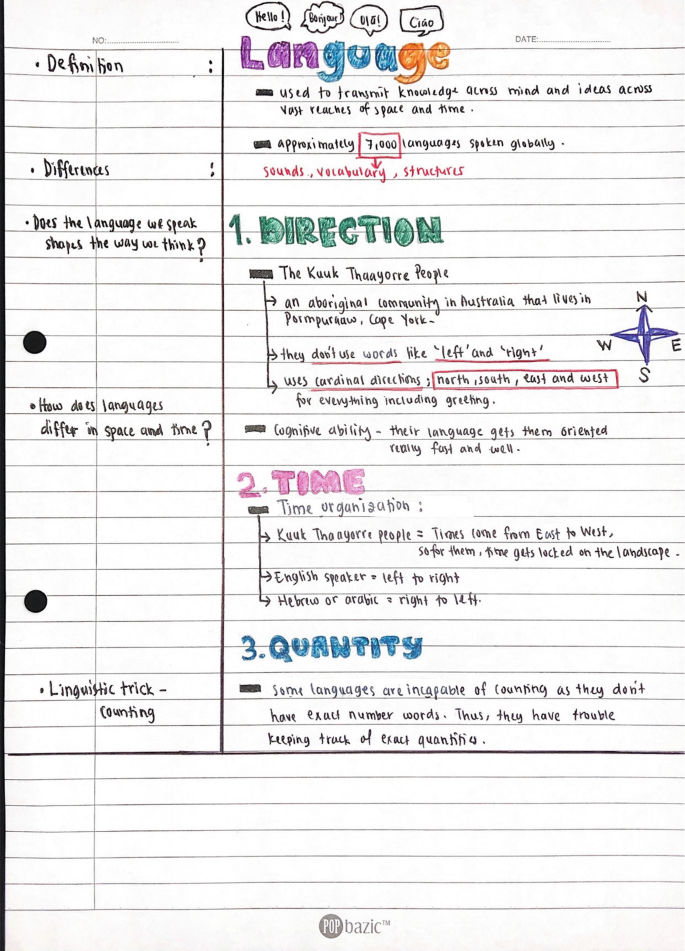 Hello!
Bonjour!
Olá!
Ciao
NO:
DATE:
Language
• Definition :
used to transmit knowledge across mind and ideas across
vast reaches of space and time.
approximately 7,000 languages spoken globally.
• Differences :
sounds, vocabulary, structures
• Does the language we speak
shapes the way we think?
1. DIRECTION
The Kuuk Thaayorre People
an aboriginal community in Australia that lives in
Pormpuraaw, Cape York-
they don't use words like 'left' and 'right'
uses cardinal directions; north, south, east and west
for everything including greeting.
N
W
E
S
• How does languages
differ in space and time?
Cognitive ability - their language gets them oriented
really fast and well.
2. TIME
Time organization:
Kuuk Thaayorre people = Times come from East to West,
so for them, time gets locked on the landscape.
English speaker = left to right
Hebrew or arabic = right to left.
3. QUANTITY
• Linguistic trick -
counting
Some languages are incapable of counting as they don't
have exact number words. Thus, they have trouble
keeping track of exact quantities.
POP bazic™